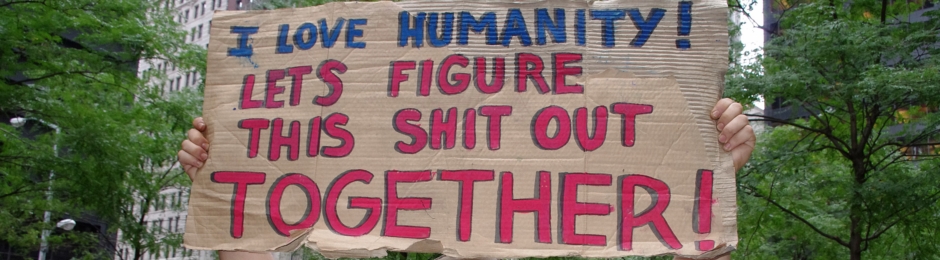 I LOVE HUMANITY!
LETS FIGURE
THIS SHIT OUT
TOGETHER!